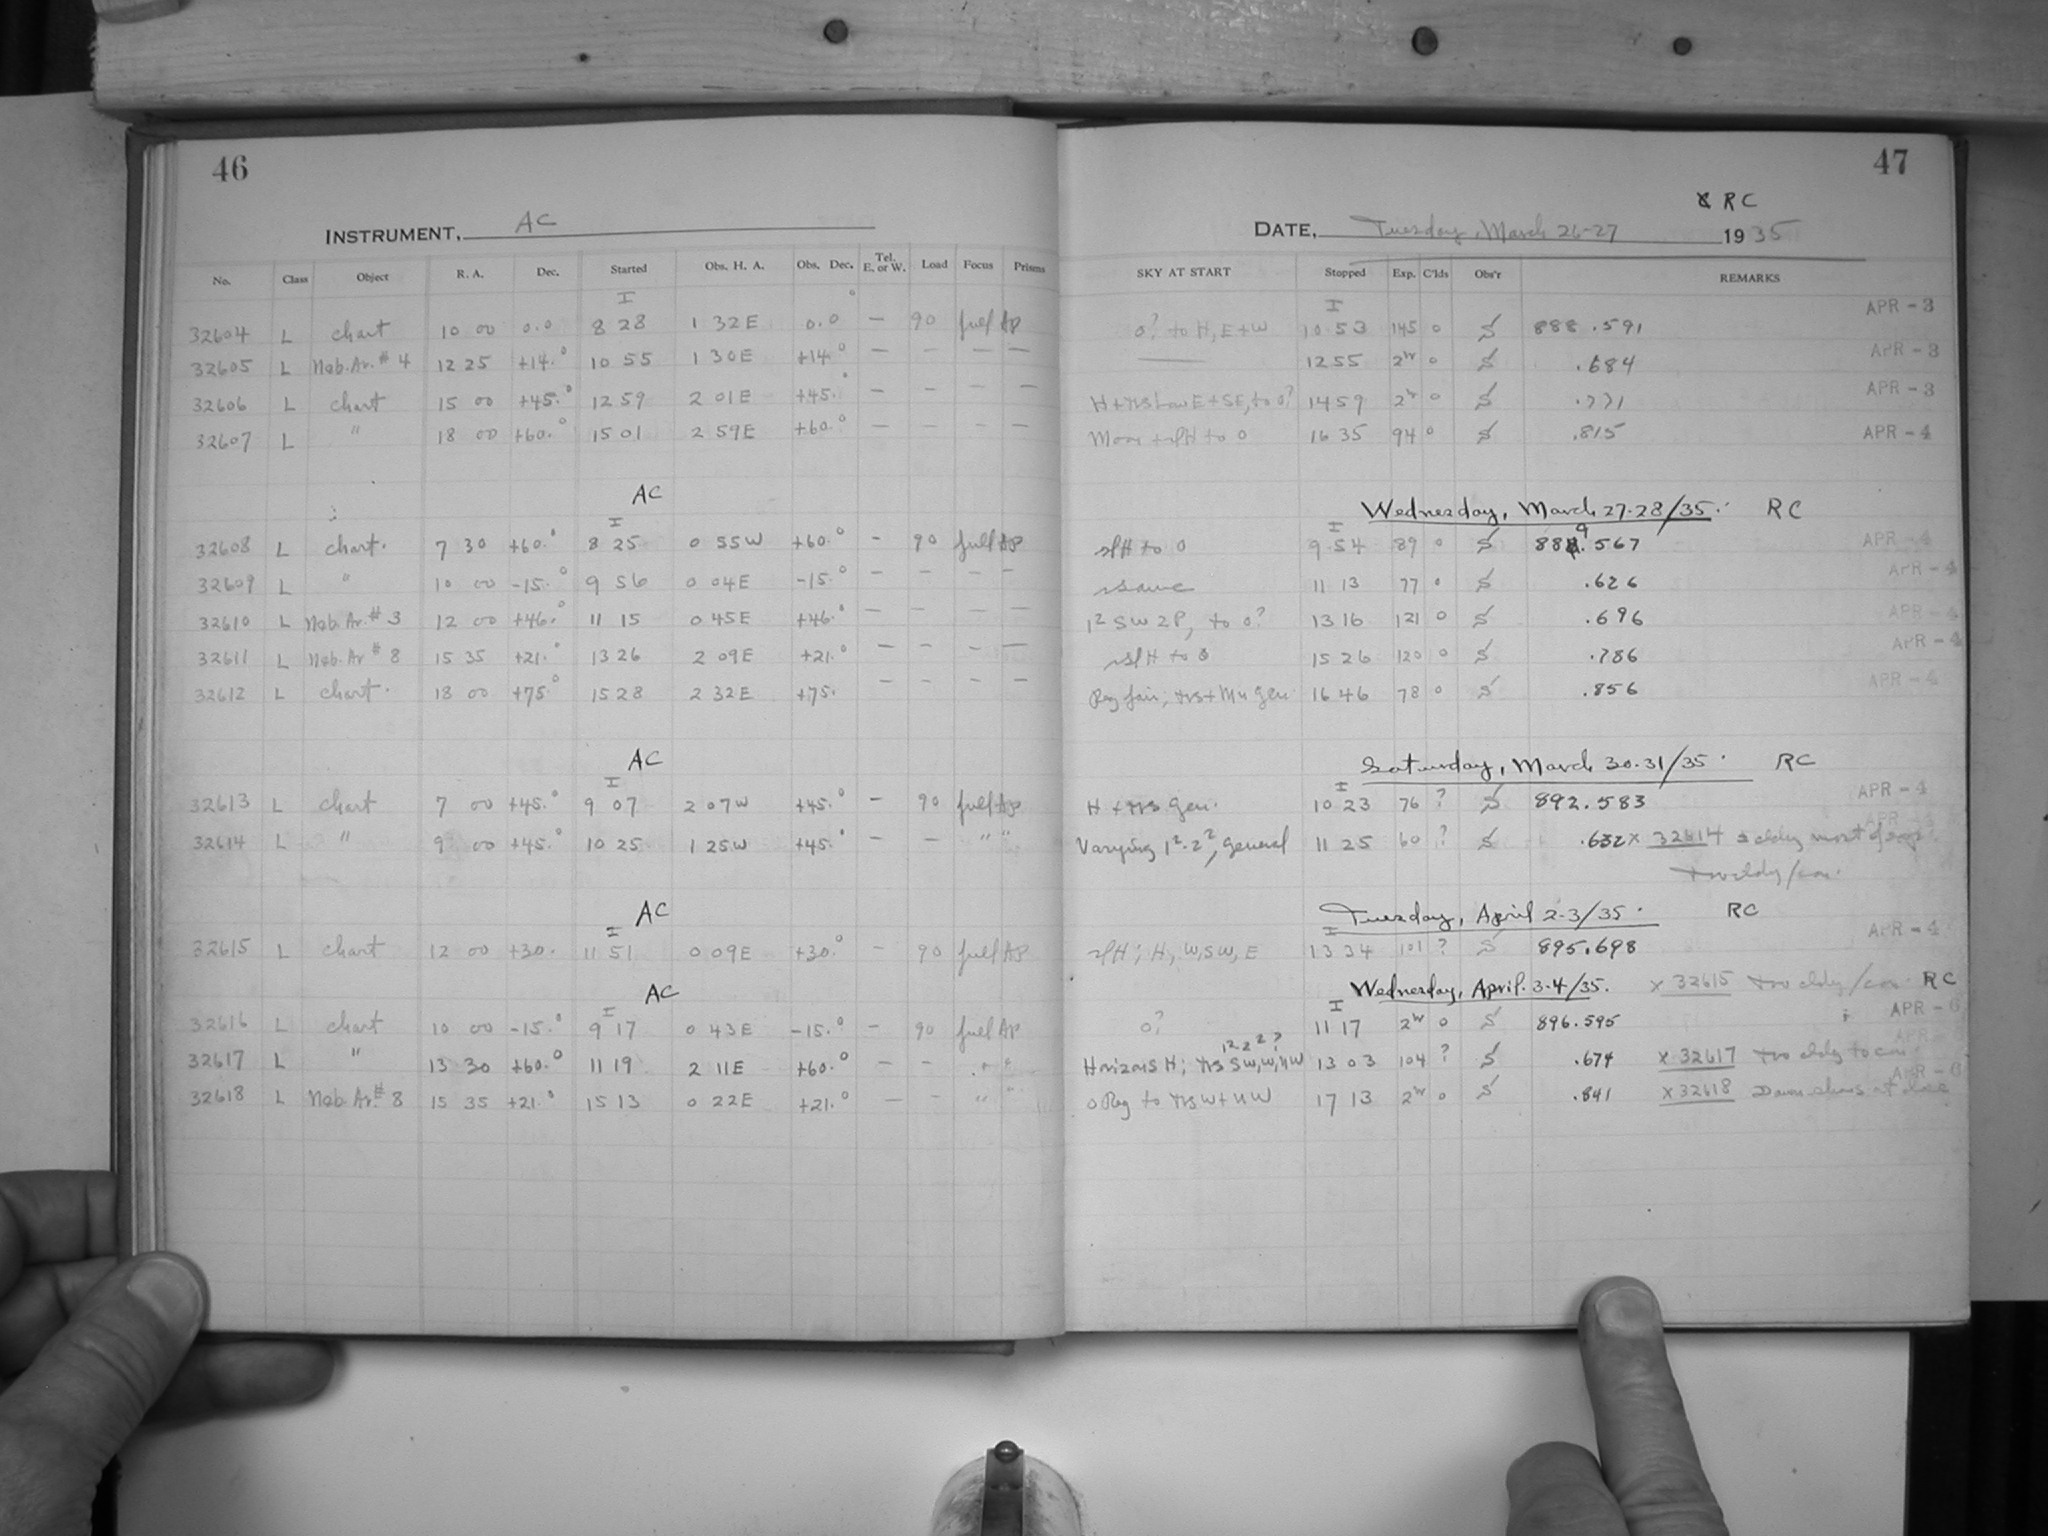 46
INSTRUMENT, AC
No. Class Object R. A. Dec. Started Obs. H. A. Obs. Dec. Tel. E. or W. Load Focus Prisms
I
32604 L chart 10 00 0.0 8 28 1 32E 0.0° — 90 full AP
32605 L Neb. Ar. #4 12 25 +14.° 10 55 1 30E +14.° — — — —
32606 L chart 15 00 +45.° 12 59 2 01E +45.° — — — —
32607 L " 18 00 +60.° 15 01 2 59E +60.° — — — —
AC
I
32608 L chart. 7 30 +60.° 8 25 0 55W +60.° — 90 full AP
32609 L " 10 00 -15.° 9 56 0 04E -15.° — — — —
32610 L Neb. Ar. #3 12 00 +46.° 11 15 0 45E +46.° — — — —
32611 L Neb. Ar #8 15 35 +21.° 13 26 2 09E +21.° — — — —
32612 L chart. 18 00 +75.° 15 28 2 32E +75. — — — —
AC
I
32613 L chart 7 00 +45.° 9 07 2 07W +45.° — 90 full AP
32614 L " 9 00 +45.° 10 25 1 25W +45.° — — " "
AC
I
32615 L chart 12 00 +30. 11 51 0 09E +30.° — 90 full AP
AC
I
32616 L chart 10 00 -15.° 9 17 0 43E -15.° — 90 full AP
32617 L " 13 30 +60.° 11 19 2 11E +60.° — — " "
32618 L Neb. Ar. #8 15 35 +21.° 15 13 0 22E +21.° — — " "
47
RC
DATE, Tuesday, March 26-27 1935
SKY AT START Stopped Exp. C'lds Obs'r REMARKS
I
0? to H, E+W 10 53 145 0 S 888.591 APR - 3
— 12 55 2hr 0 S .684 APR - 3
14 59 2hr 0 S .771 APR - 3
Moon + slH to 0 16 35 94 0 S .815 APR - 4
Wednesday, March 27-28/35. RC
I
slH to 0 9 54 89 0 S 889.567 APR - 4
same 11 13 77 0 S .626 APR - 4
1² SW 2P, to 0? 13 16 121 0 S .696 APR - 4
slH to 0 15 26 120 0 S .786 APR - 4
16 46 78 0 S .856 APR - 4
Saturday, March 30-31/35. RC
I
10 23 76 ? S 892.583 APR - 4
Varying 1²-2², general 11 25 60 ? S .632 x 32614
Tuesday, April 2-3/35. RC
I
slH; H, W, SW, E 13 34 101 ? S 895.698 APR - 4
Wednesday, April 3-4/35. x 32615 too cldy/con RC
I
0? 11 17 2hr 0 S 896.595 APR - 6
1²-2²?
Horizons H; SW, W, NW 13 03 104 ? S .674 x 32617 too cldy to con
APR - 6
17 13 2hr 0 S .841 x 32618 Dawn shows at close